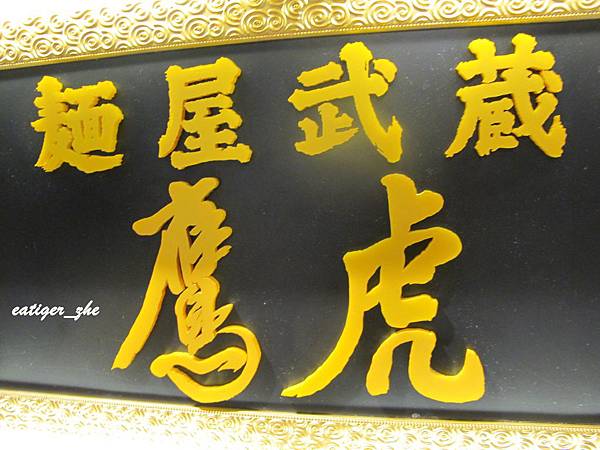 麺屋武蔵
鷹虎
eatiger_zhe